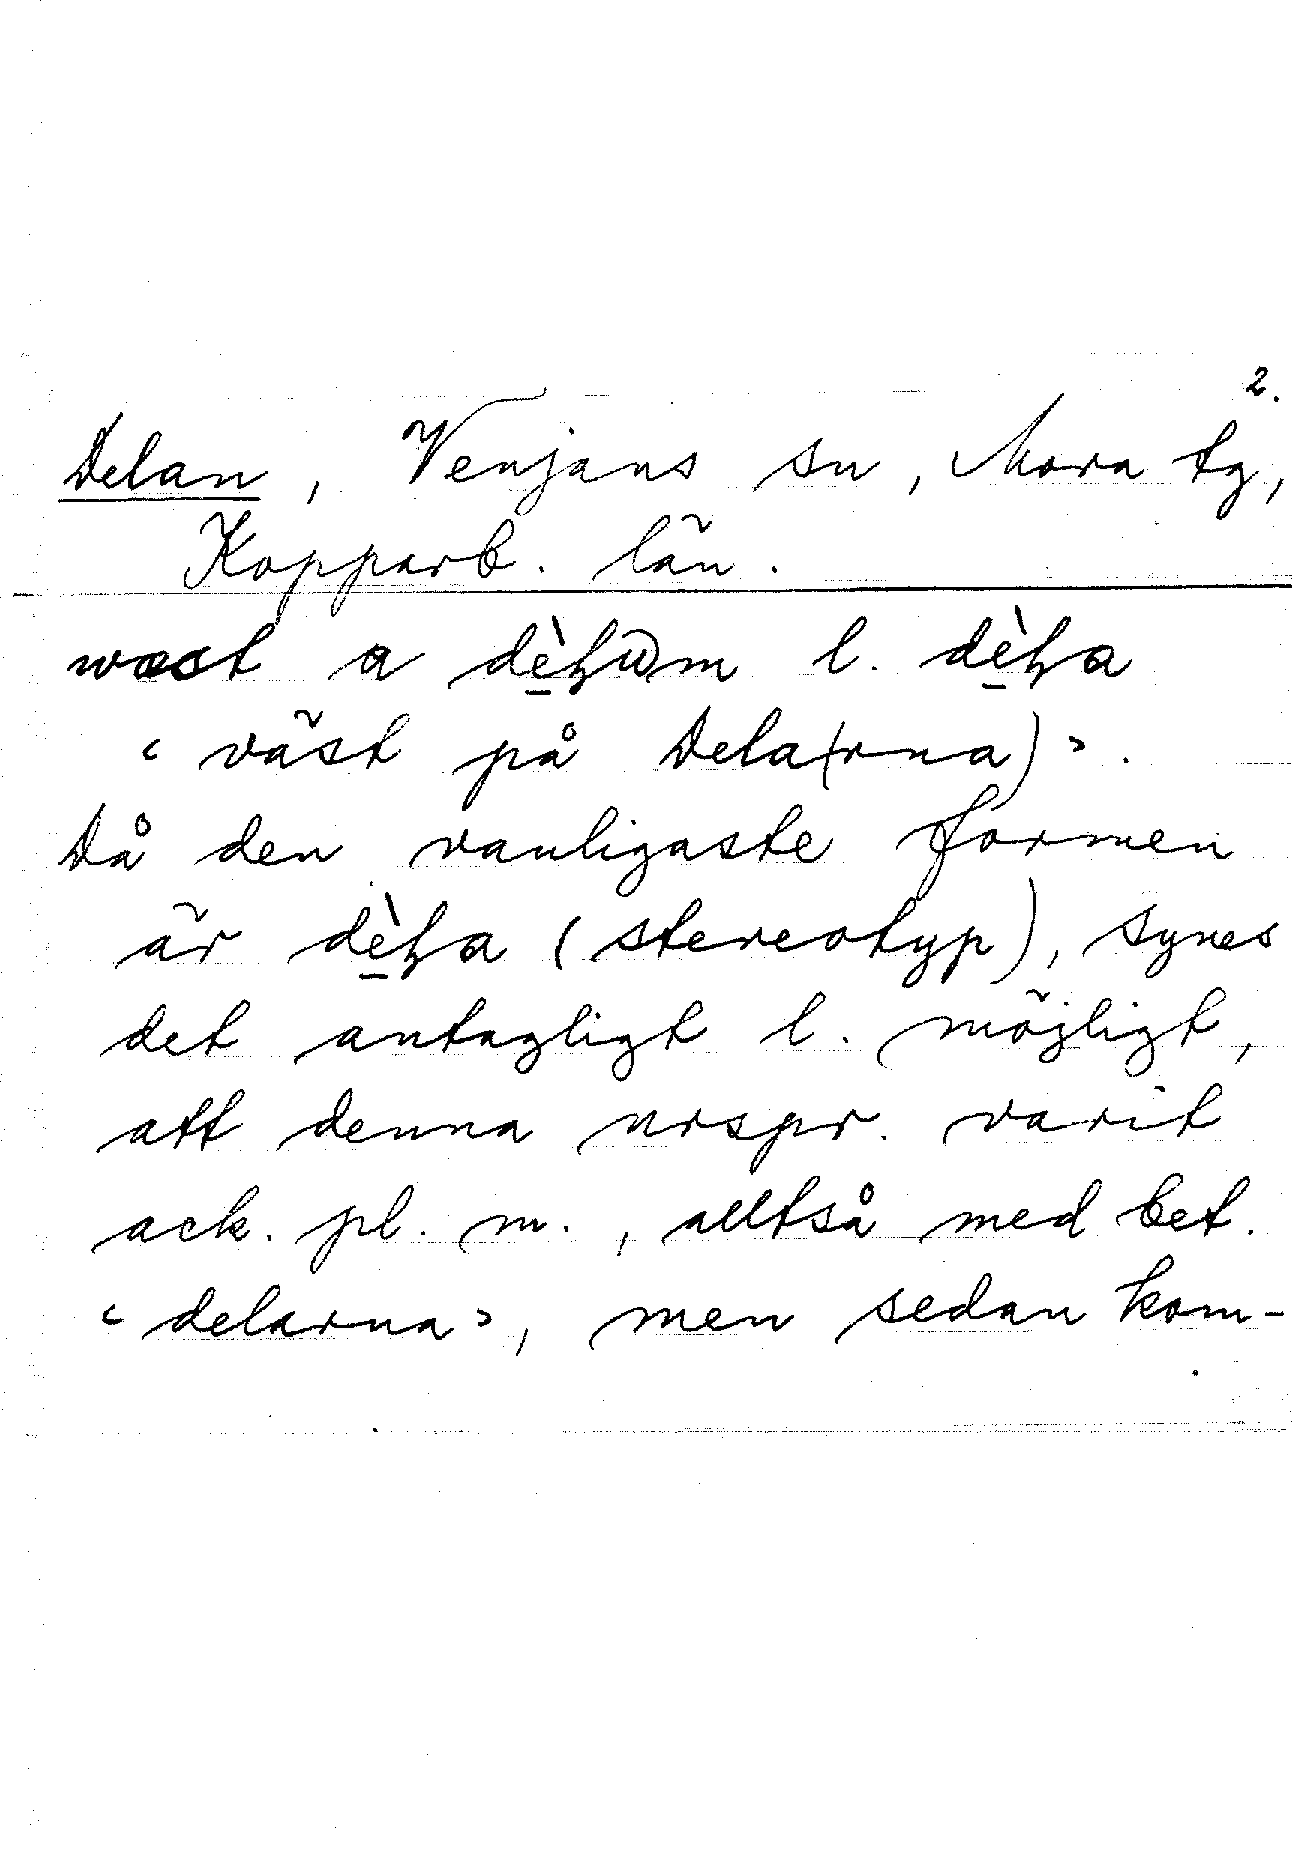 2.
Delan, Venjans sn, Mora tg,
Kopparb. län.
wæst a l.
‹ väst på Dela(rna) ›.
Då den vanligaste formen
är (stereotyp), synes
det antagligt l. möjligt,
att denna urspr. varit
ack. pl. m., alltså med bet.
‹ delarna ›, men sedan kom-